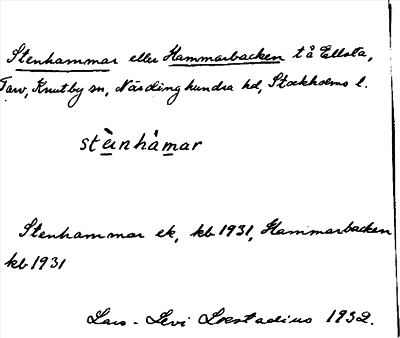 Stenhammar eller Hammarbacken t å Ellsta,
Tarv, Knutby sn, Närdinghundra hd, Stockholms l.
stèinhåmar
Stenhammar ek, kb 1931, Hammarbacken
kb 1931
Lars-Levi Læstadius 1932.